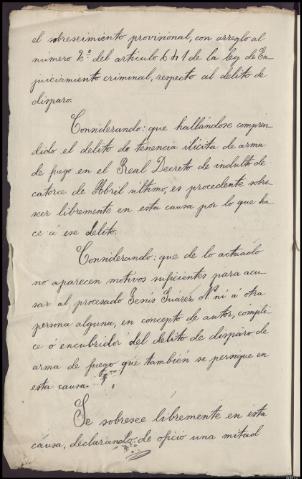 el sobreseimiento provisional, con arreglo al
numero 2º del articulo 641 de la ley de En-
juiciamiento criminal, respecto al delito de
disparo.
Considerando: que hallándose compren-
dido el delito de tenencia ilícita de arma
de fuego en el Real Decreto de indulto de
catorce de Abril ultimo, es procedente sobre-
seer libremente en esta causa por lo que ha-
ce á ese delito.
Considerando: que de lo actuado
no aparecen motivos suficientes para acu-
sar al procesado Genis Juárez Nº ni á otra
persona alguna, en concepto de autor, cómpli-
ce ó encubridor del delito de disparo de
arma de fuego que también se persigue en
esta causa.
Se sobresee libremente en esta
causa, declarando de oficio una mitad